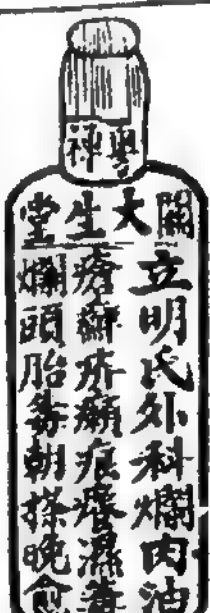 粵禪
關大生堂
立明氏外科爛肉油
瘡癬疥癩痕癢濕毒
爛頭胎毒朝搽晚愈